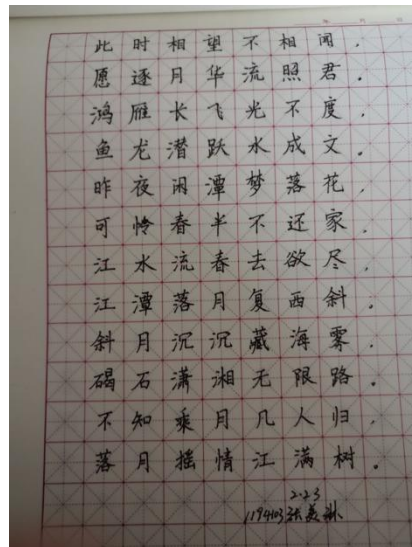 此时相望不相闻，
愿逐月华流照君。
鸿雁长飞光不度，
鱼龙潜跃水成文。
昨夜闲潭梦落花，
可怜春半不还家，
江水流春去欲尽，
江潭落月复西斜。
斜月沉沉藏海雾，
碣石潇湘无限路。
不知乘月几人归，
落月摇情江满树。
2.23